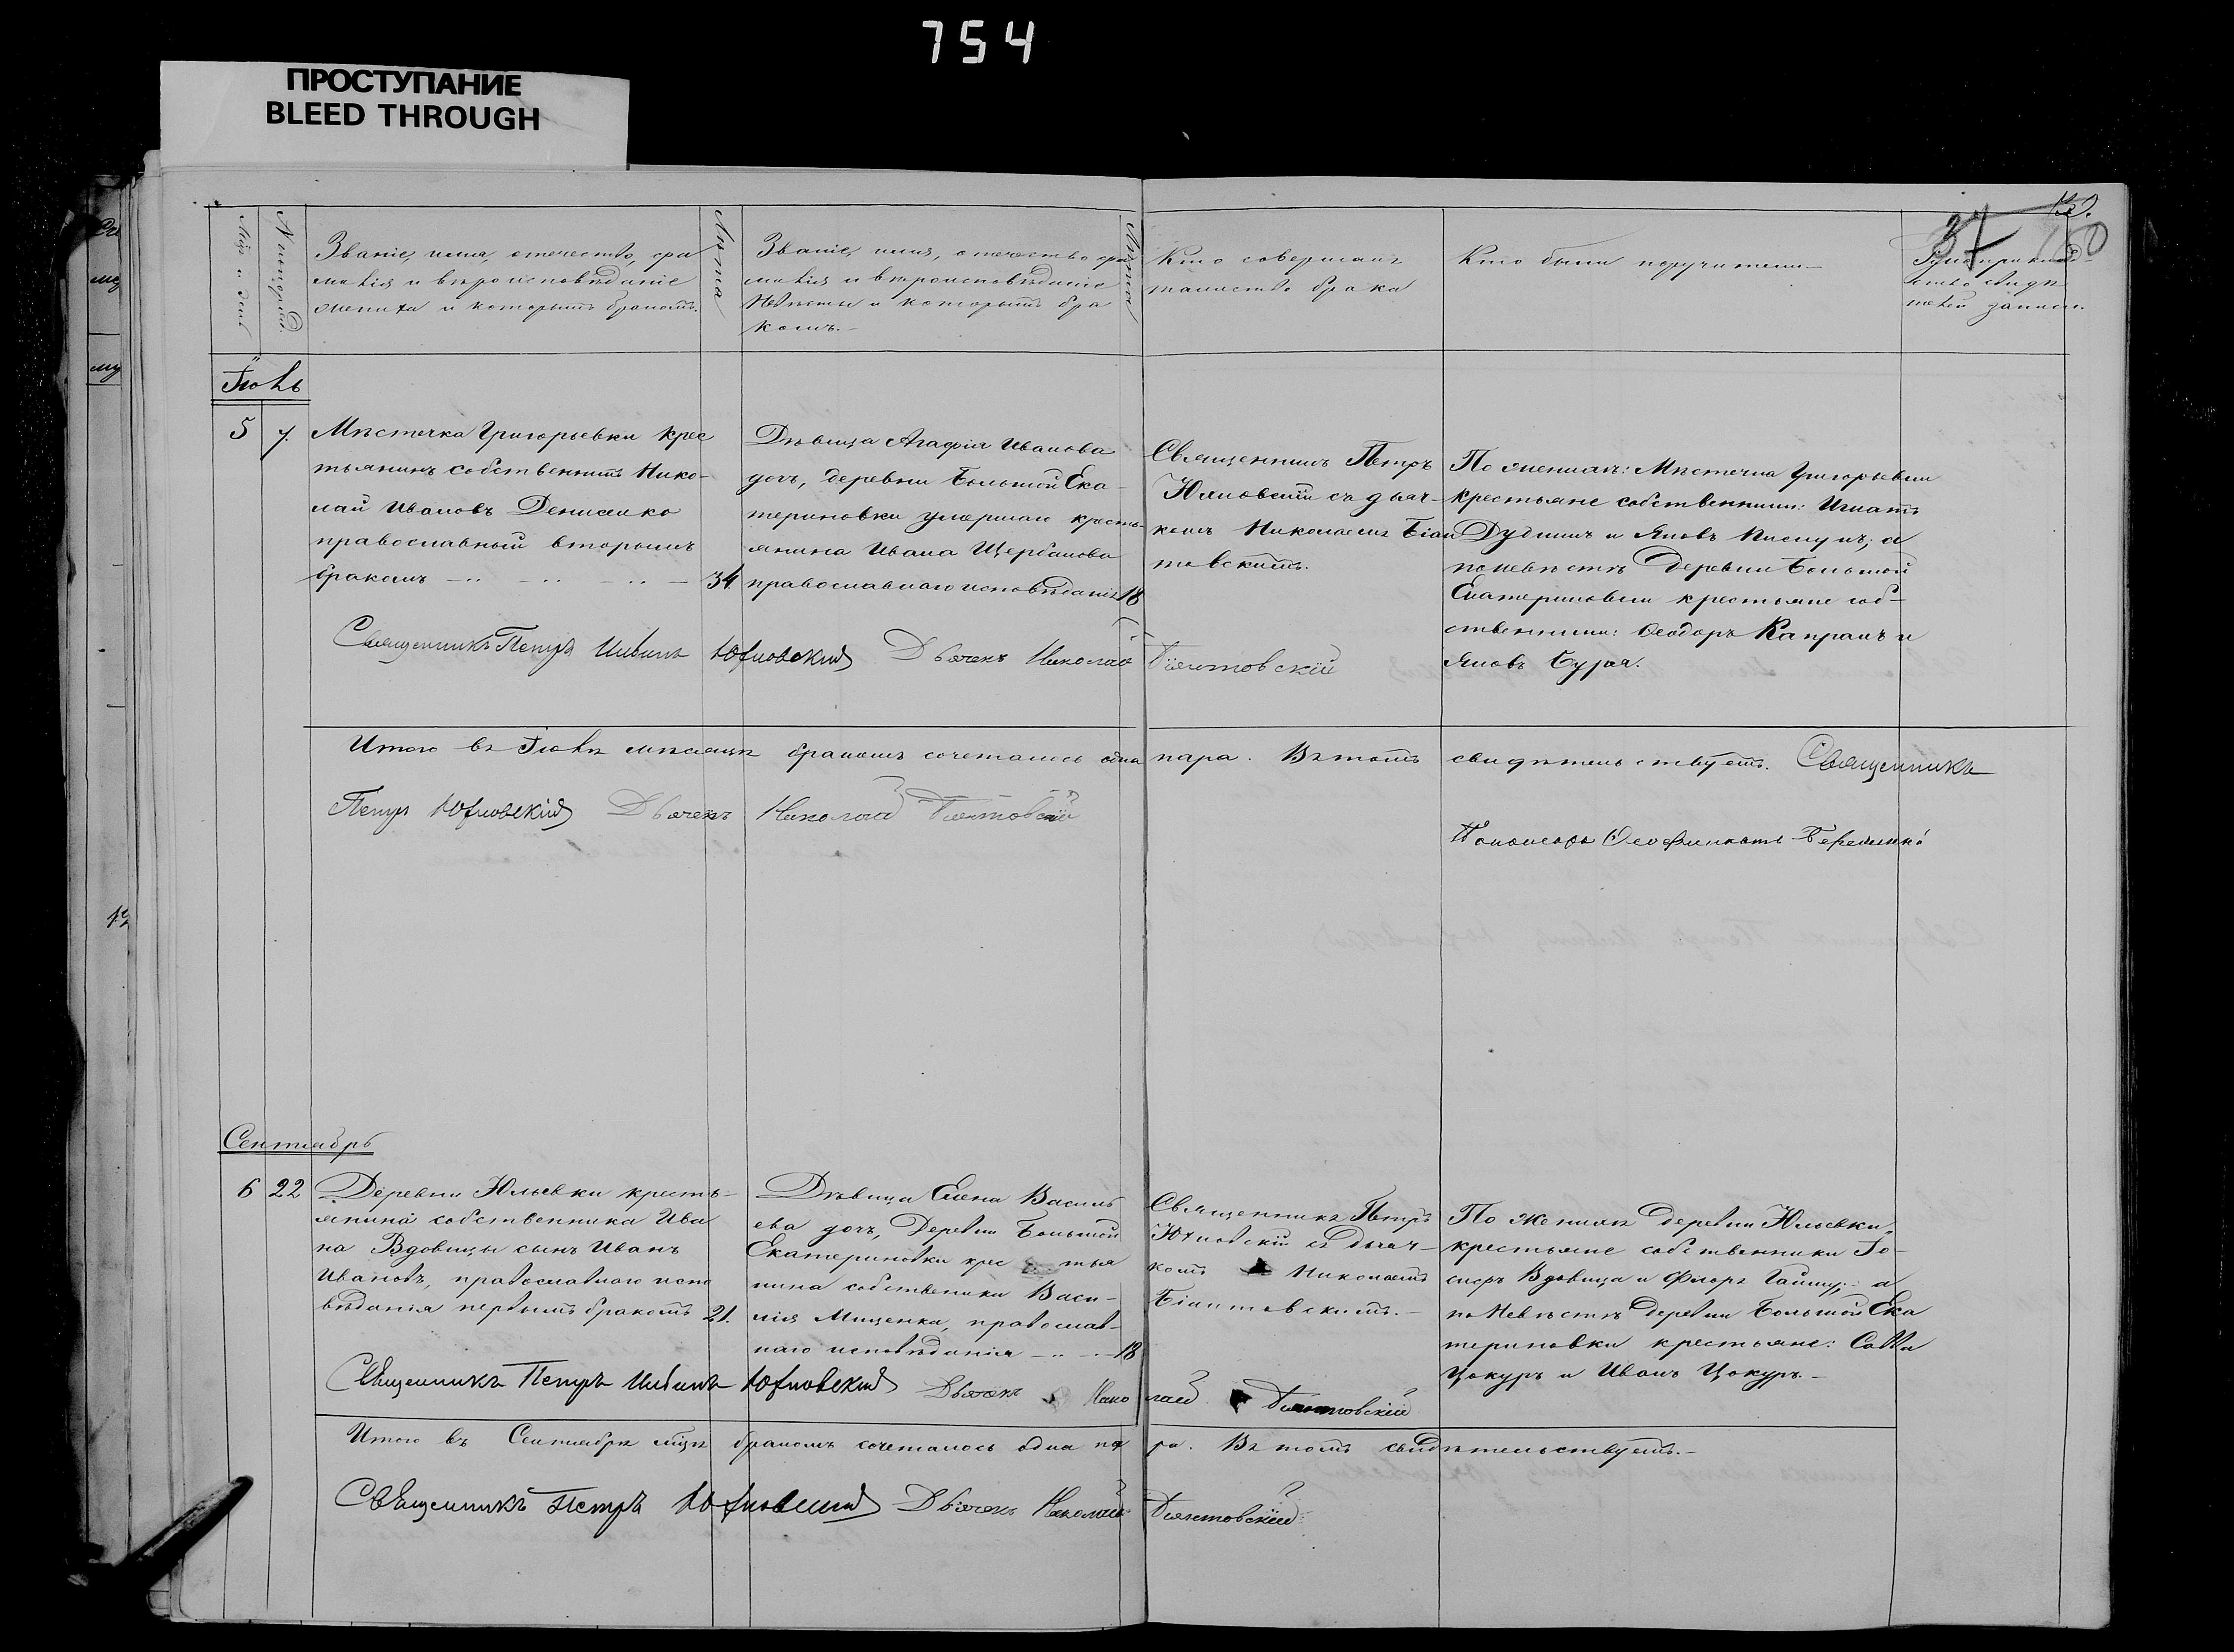 754
ПРОСТУПАНИЕ
BLEED THROUGH
37
Мѣс. и день
Званіе, имя, отечество, фа
милія и вѣроисповѣданіе
жениха и которымъ бракомъ.
Лѣта
Званіе, имя, отечество фа
милія и вѣроисповѣданіе
Невѣсты и которымъ бра
комъ.-
Лѣта
Кто совершалъ
таинство брака
Кто были поручители
записи.
5 7.
Мѣстечка Григорьевки крес
тьянинъ собственникъ Нико-
лай Ивановъ Денисенко
православный вторымъ
бракомъ 34
Дѣвица Агафія Иванова
дочь, деревни Большой Ека-
териновки умершаго кресть-
янина Ивана Щербакова
православнаго исповѣданія 18
Священникъ Петръ
Юхновскій съ дьяч-
комъ Николаемъ Біан
товскимъ.
По женихѣ: Мѣстечка Григорьевки
крестьяне собственники: Игнатъ
Дудникъ и Яковъ; а
по невѣстѣ Деревни Большой
Екатериновки крестьяне соб-
ственники: Ѳеодоръ Капранъ и
Яковъ Бурая.
Священникъ Петръ Юхновскій Дьячекъ Николай Біянтовскій
Итого въ мѣсяцѣ бракомъ сочеталось одна пара. Въ томъ свидѣтельствуетъ. Священникъ
Петръ Юхновскій Дьячекъ Николай Біянтовскій
Пономарь
Сентябрь
6 22
Деревни Юльевки кресть-
янина собственника Ива
на Вдовицы сынъ Иванъ
Ивановъ, православнаго испо
вѣданія первымъ бракомъ 21.
Дѣвица Елена Василь
ева дочь, Деревни Большой
Екатериновки крес тья
нина собственика Васи-
лія Мищенка, православ-
наго исповѣданія 18
Священникъ Петръ
Юхновскій съ Дьяч-
комъ Николаемъ
Біантовскимъ.-
По женихѣ деревни Юльевки
крестьяне собственники Іо-
сифъ Вдовица и Флоръ; а
по Невѣстѣ Деревни Большой Ека
териновки крестьяне: Савва
Цокуръ и Иванъ Цокуръ.-
Священникъ Петръ Юхновскій Дьячекъ Нико лай Біянтовскій
Итого въ Сентябрѣ мцѣ бракомъ сочеталось одна па ра. Въ томъ свидѣтельствуетъ.-
Священникъ Петръ Юхновскій Дьячекъ Николай Біянтовскій